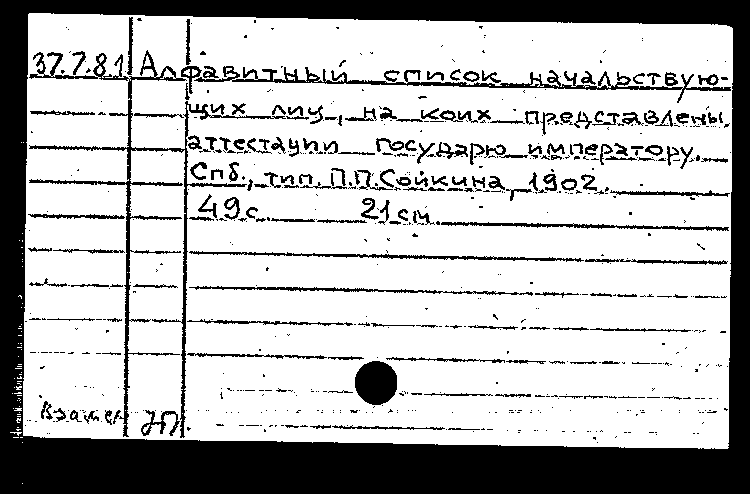 37.7.81 Алфавитный список начальствую-
щих лиц, на коих представлены
аттестации государю императору.
Спб., тип. П.П.Сойкина, 1902.
49с 21см.
Взамен